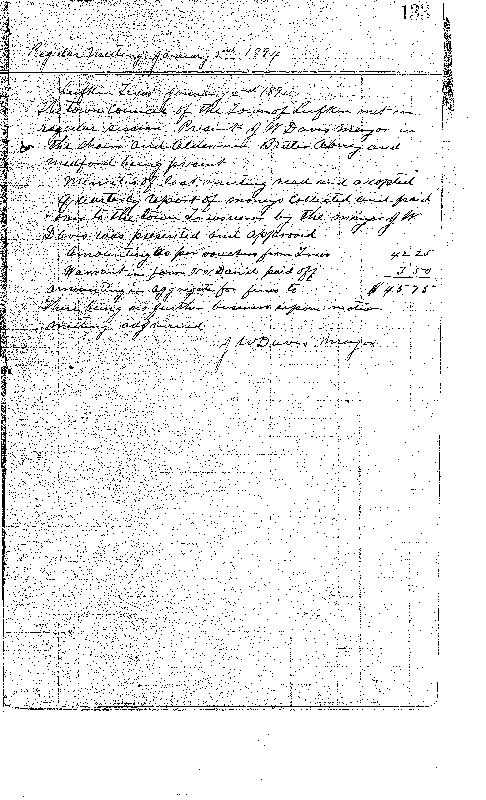 133
Regular Meeting January 2nd 1894
Lufkin Texas January 2nd 1894
The town Council of the Town of Lufkin met in
regular session Present J W Davis Mayor in
the Chair and Aldermen Abney and
Medford being present
Minutes of last meeting read and adopted
Quarterly report of moneys Collected and paid
over to the town Treasurer by the Mayor J W
Davis was presented and approved
Amounting as per vouchers from Fines 42 25
Warrant in favor paid off 3 50
amounting in aggregate for fines to $ 45 75
There being no further business upon motion
meeting adjourned
J W Davis Mayor